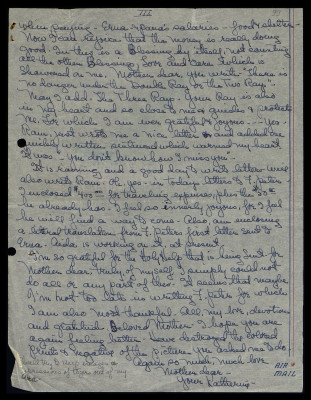 III
when paying - Erna & Rana's salaries - food & shelter -
Now I can rejoice that the money is really doing
good. In this is a Blessing by itself, not counting
all the other Blessings, Love and Care which is
showered on me. Mother dear, you write - "There is
no danger under the Double Ray or the Two Ray".
May I add - the Three Rays - Your Ray is also
in my heart and so close to me guides & protects
me. For which I am ever grateful & joyous. - Yes
Rani, just wrote me a nice letter and added one
quickly written sentence which warmed my heart.
It was - "You don't know how I miss you".
It is raining and a good day to write letters. Am
also writing Rani. Oh yes - in today's letter to F. Peter
I enclosed for traveling expenses, plus the
he already has. I feel so inwardly joyous, for I feel
he will find a way to come. Also, am enclosing
a literal translation from F. Peter's last letter sent to
Erna. Aida is working on it, at present.
I'm so grateful for the help that is being sent for
Mother dear, truly, of myself I simply could not
do all or any part of this. It seems that maybe
I'm not too late in writing F. Peter for which
I am also most thankful. All my love, devotion
and gratitude. Beloved Mother - I hope you are
again feeling better. Have destroyed the colored
Prints & negative of the picture you asked me to do.
Again so much, much love
Mother dear -
Your Katherine -
AIR
MAIL